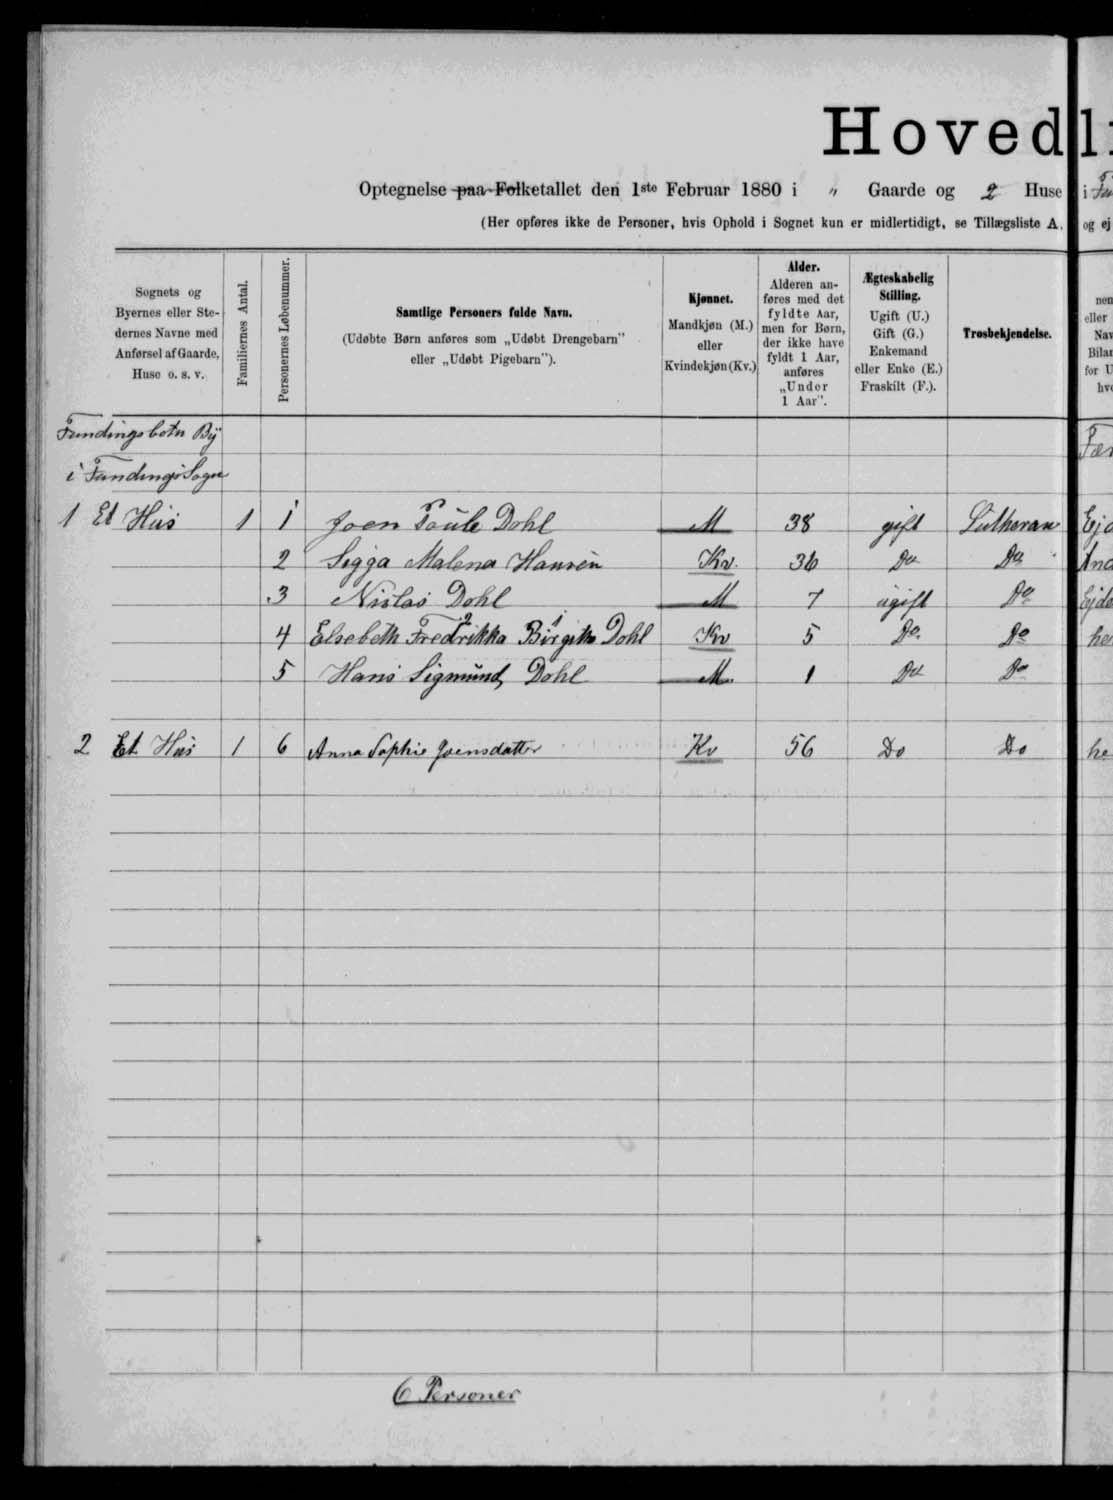 Hovedli
Optegnelse paa Folketallet den 1ste Februar 1880 i " Gaarde og 2 Huse i
(Her opføres ikke de Personer, hvis Ophold i Sognet kun er midlertidigt, se Tillægsliste A, og ej
Sognets og Byernes eller Stedernes Navne med Anførsel af Gaarde, Huse o. s. v.
Familiernes Antal.
Personernes Løbenummer.
Samtlige Personers fulde Navn.
(Udøbte Børn anføres som „Udøbt Drengebarn"
eller „Udøbt Pigebarn").
Kjønnet.
Mandkjøn (M.)
eller
Kvindekjøn (Kv.)
Alder.
Alderen an-
føres med det
fyldte Aar,
men for Børn,
der ikke have
fyldt 1 Aar,
anføres
„Under
1 Aar".
Ægteskabelig
Stilling.
Ugift (U.)
Gift (G.)
Enkemand
eller Enke (E.)
Fraskilt (F.).
Trosbekjendelse.
nem
eller
Nav
Bilan
for U
hvo
Fundingsbotn By
i Fundings Sogn
1 Et Hus 1 1 Joen Poule Dohl M 38 gift Lutheran Ejd
2 Sigga Malena Hansen Kv. 36 Do Do And
3 Niclas Dohl M 7 ugift Do Ejde
4 Elsebeth Fredrikka 2 Birgithe 1 Dohl Kv 5 Do Do he
5 Hans Sigmund Dohl M. 1 Do Do
2 Et Hus 1 6 Anna Sophie Joensdatter Kv 56 Do Do he
6 Personer